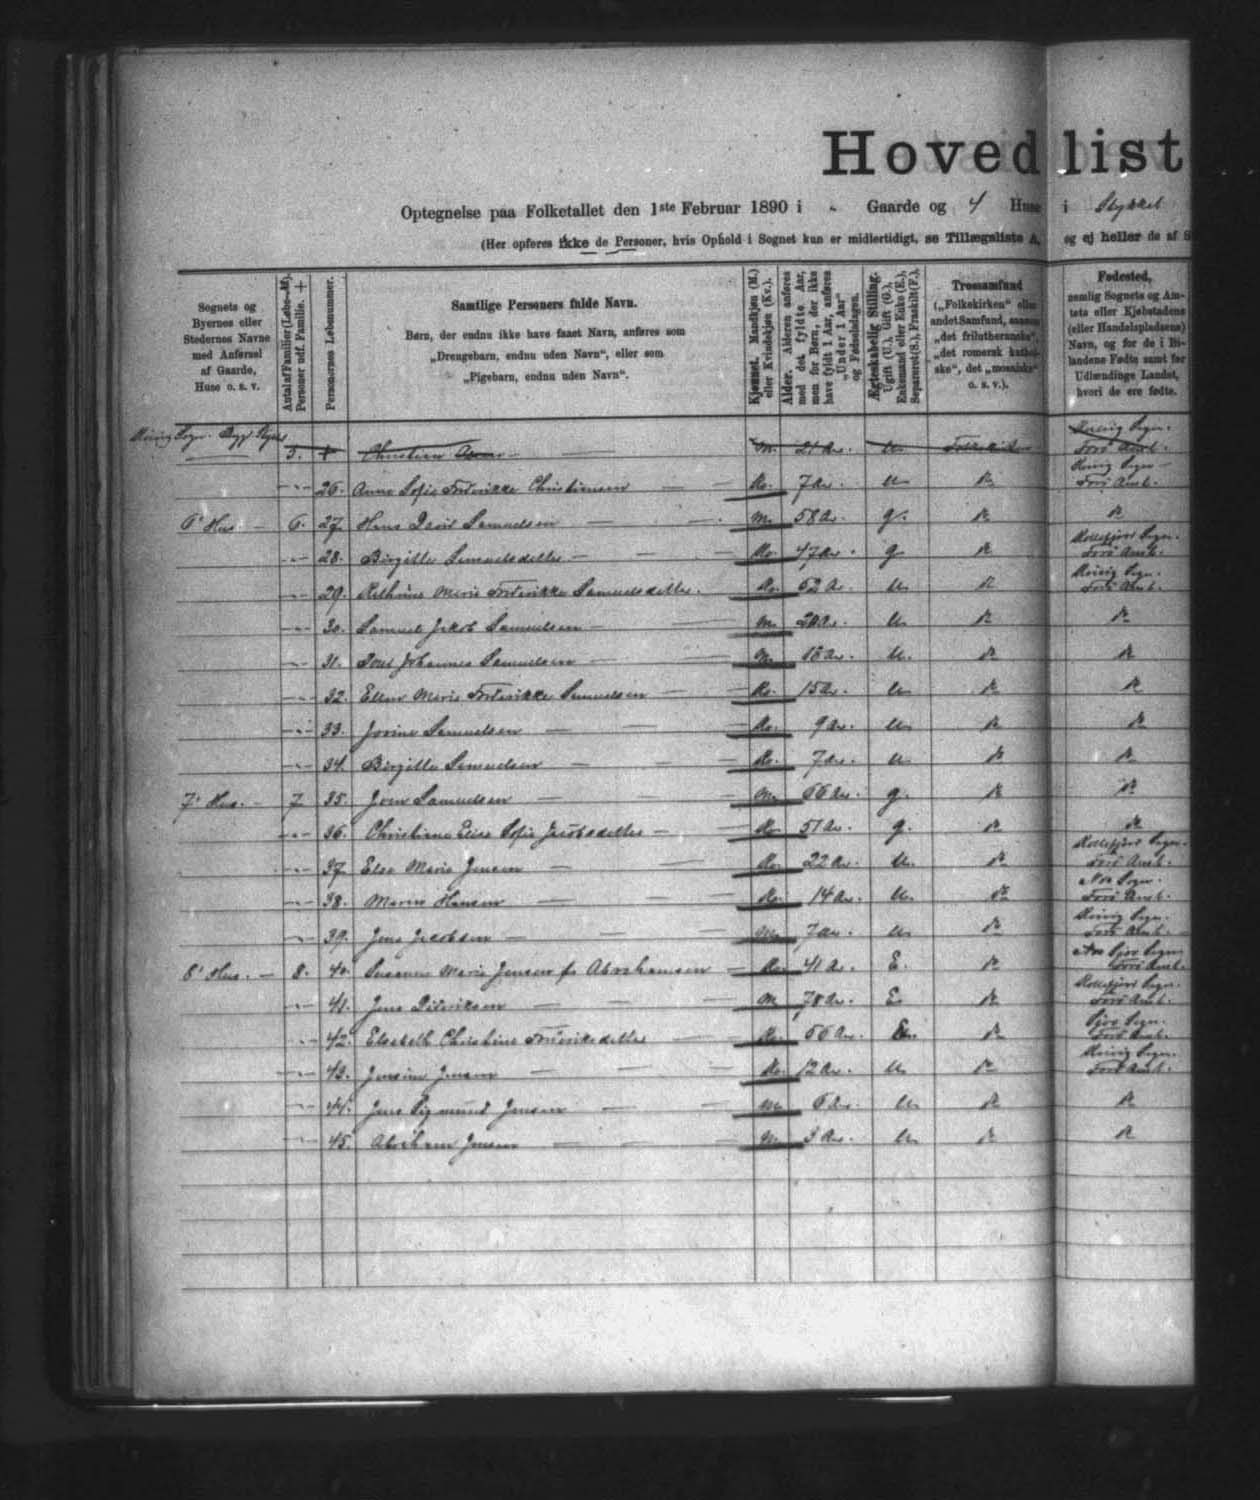 Hovedlist
Optegnelse paa Folketallet den 1ste Februar 1890 i - Gaarde og 4 Huse i Stykket
(Her opføres ikke de Personer, hvis Ophold i Sognet kun er midlertidigt, se Tillægsliste A, og ej heller de af S
Sognets og Byernes eller Stedernes Navne med Anførsel af Gaarde, Huse o. s. v.
Antal af Familier (Løbe-№). Personer udf. Familie. +
Personernes Løbenummer.
Samtlige Personers fulde Navn.
Børn, der endnu ikke have faaet Navn, anføres som
„Drengebarn, endnu uden Navn“, eller som
„Pigebarn, endnu uden Navn“.
Kjønnet. Mandkjøn (M.) eller Kvindekjøn (Kv.).
Alder. Alderen anføres med det fyldte Aar, men for Børn, der ikke have fyldt 1 Aar, anføres „Under 1 Aar“ og Fødselsdagen.
Ægteskabelig Stilling. Ugift (U.), Gift (G.), Enkemand eller Enke (E.), Separeret (S.), Fraskilt (F.).
Trossamfund („Folkekirken“ eller andet Samfund, saasom „det frilutheranske“, „det romersk katholske“, det „mosaiske“ o. s. v.).
Fødested, nemlig Sognets og Amtets eller Kjøbstadens (eller Handelspladsens) Navn, og for de i Bilandene Fødte samt for Udlændinge Landet, hvori de ere fødte.
5. Christian M. 21 Ar. U Folkekirken Kvivig Sogn. Forø Amt.
26. Anna Sofie Frederikke Christiansen Kv. 7 Ar U do Kvivig Sogn Forø Amt.
6' Hus 6. 27. Hans David Samuelsen M. 58 Ar. g. do do
28. Birgitte Samuelsdatter Kv. 47 Ar. g do Kollefjord Sogn. Forø Amt.
29. Kathrine Marie Frederikke Samuelsdatter. Kv. 52 Ar. U do Kvivig Sogn. Forø Amt.
30. Samuel Jakob Samuelsen M. 20 Ar. U. do do
31. Poul Johannes Samuelsen M. 18 Ar. U. do do
32. Ellen Marie Frederikke Samuelsen Kv. 15 Ar. U do do
33. Jovine Samuelsen Kv. 9 Ar. U. do do
34. Birgitte Samuelsen Kv. 7 Ar. U. do do
7' Hus. 7 35. Joen Samuelsen M. 66 Ar. g. do do
36. Christiane Elise Sofie Jacobsdatter Kv. 51 Ar. g. do do
37. Else Marie Jensen Kv. 22 Ar. U. do Kollefjord Sogn. Forø Amt.
38. Maren Hansen Kv. 14 Ar. U. do Nes Sogn. Forø Amt.
39. Jens Jacobsen M. 7 Ar. U. do Kvivig Sogn. Forø Amt.
8' Hus. 8. 40. Susanne Marie Jensen f. Abrahamsen Kv. 41 Ar. E. do Sogn Forø Amt.
41. Jens Didriksen M 78 Ar. E do Kollefjord Sogn. Forø Amt.
42. Elsebeth Christine Frederiksdatter Kv. 66 Ar. do Sogn. Forø Amt.
43. Jensine Jensen Kv. 12 Ar. U do Kvivig Sogn. Forø Amt.
44. Jens Sigmund Jensen M. 6 Ar. U. do do
45. Abraham Jensen M. 3 Ar. U do do